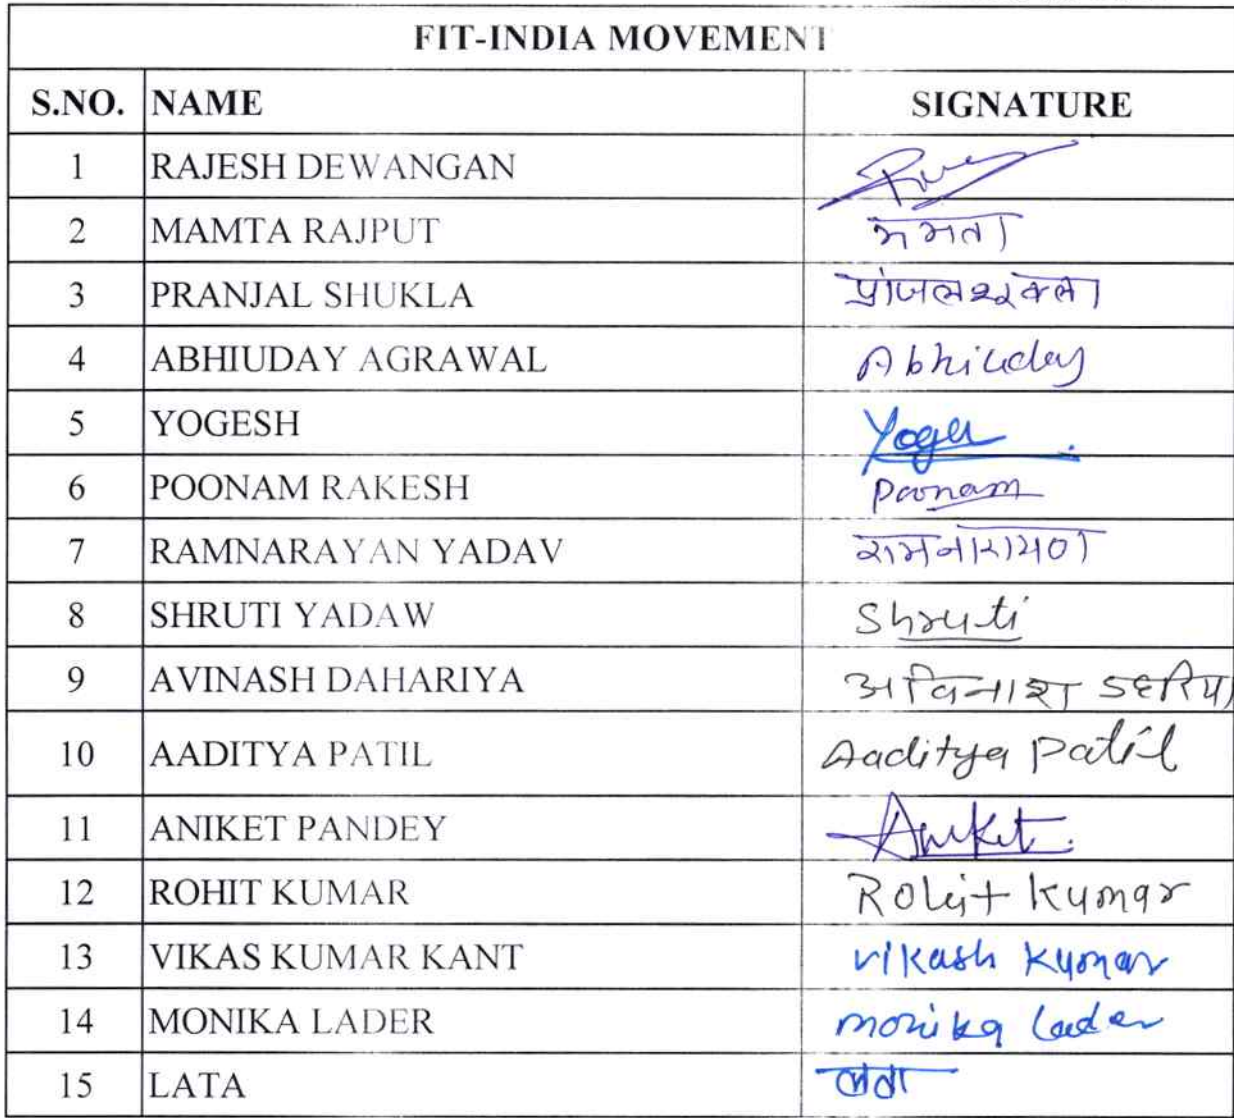 FIT-INDIA MOVEMENT
S.NO. NAME SIGNATURE
1 RAJESH DEWANGAN
2 MAMTA RAJPUT ममता
3 PRANJAL SHUKLA प्रांजल शुक्ला
4 ABHIUDAY AGRAWAL Abhiuday
5 YOGESH Yogesh
6 POONAM RAKESH Poonam
7 RAMNARAYAN YADAV रामनारायण
8 SHRUTI YADAW Shruti
9 AVINASH DAHARIYA अविनाश डहरिया
10 AADITYA PATIL Aaditya Patil
11 ANIKET PANDEY Aniket
12 ROHIT KUMAR Rohit Kumar
13 VIKAS KUMAR KANT vikash Kumar
14 MONIKA LADER monika lader
15 LATA लता